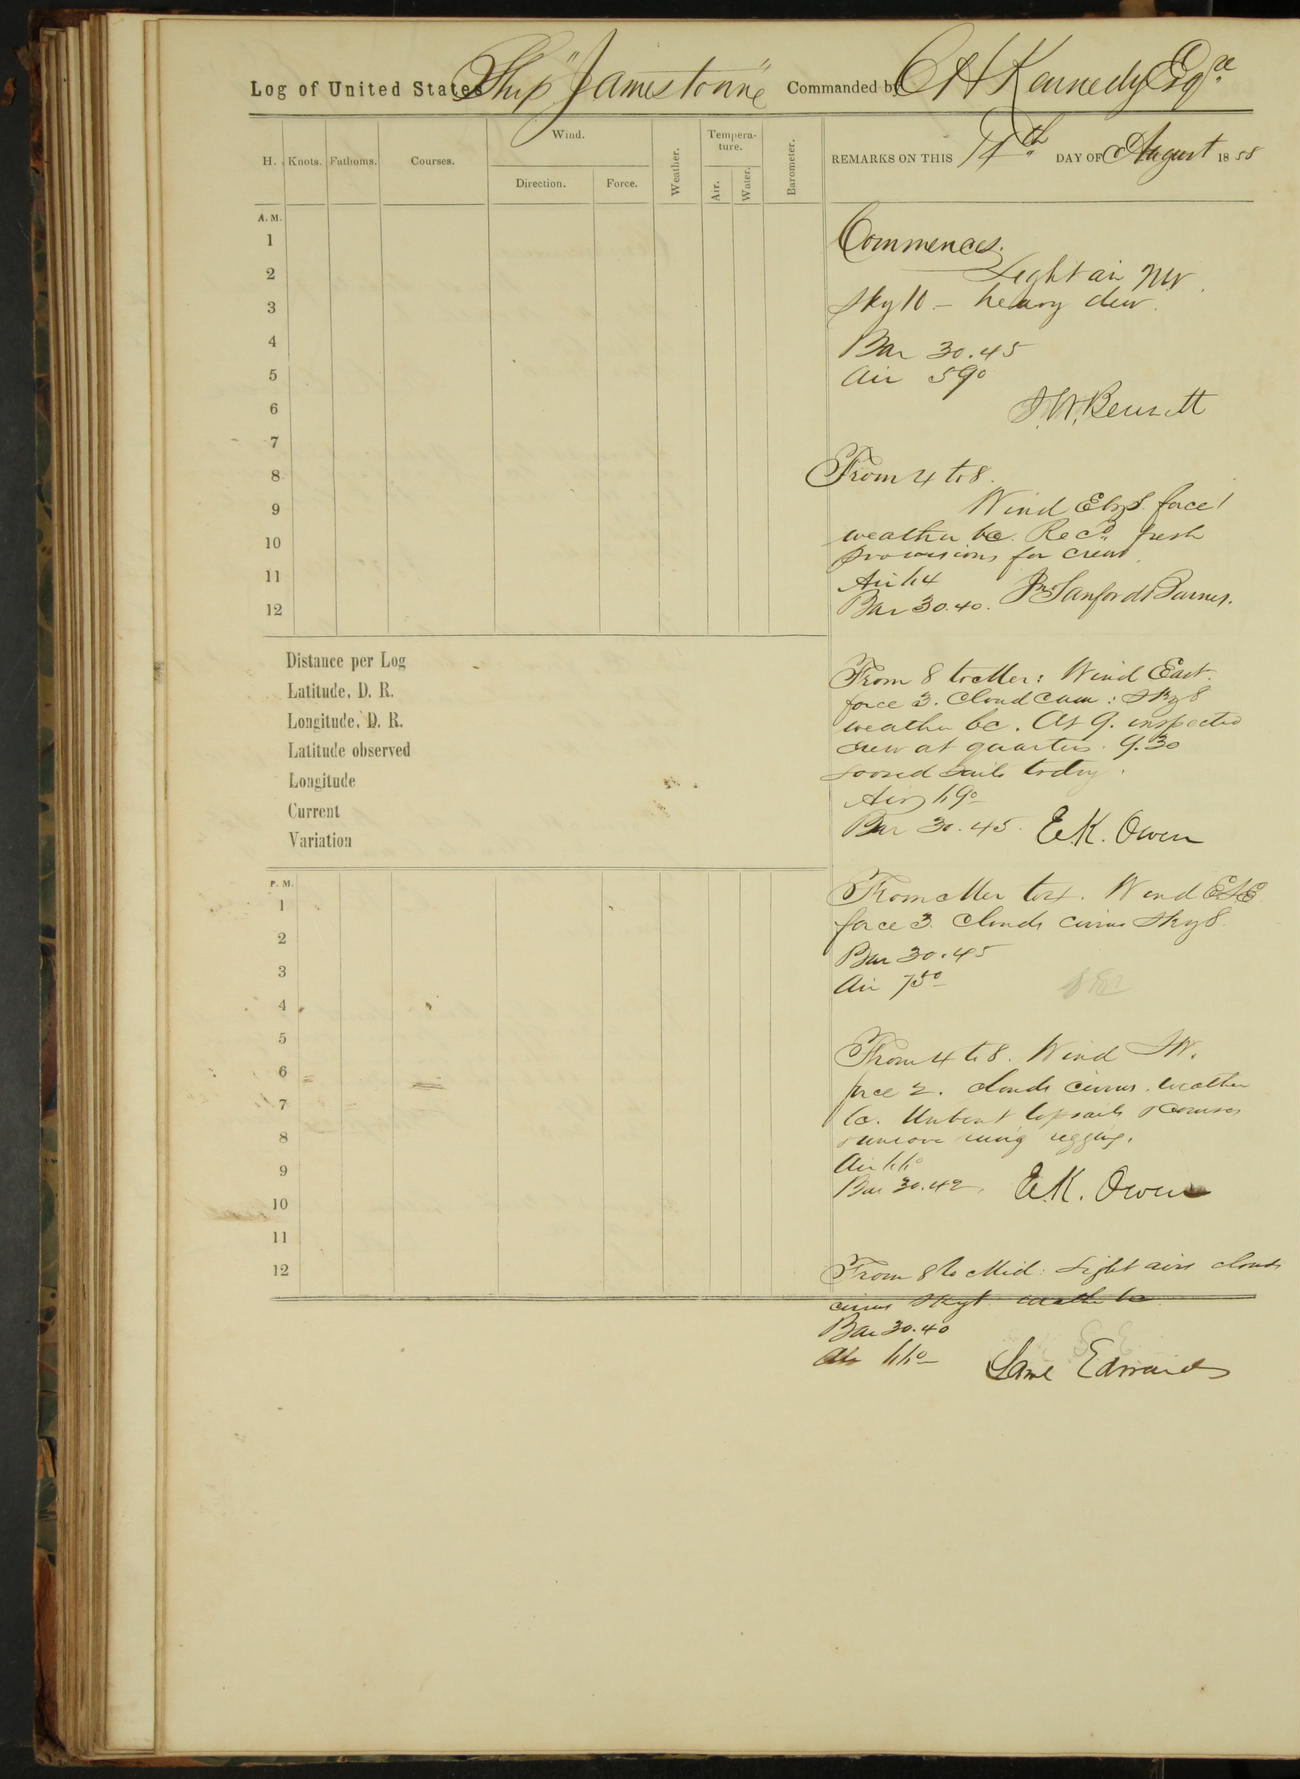 Log of United States Ship "Jamestown" Commanded by C H Kennedy Esqre
H. Knots. Fathoms. Courses. Wind. Direction. Force. Weather. Tempera-ture. Air. Water. Barometer. REMARKS ON THIS DAY OF August 1858
A. M.
1
2
3
4
5
6
7
8
9
10
11
12
Commences.
Light air NW.
Sky 10 - heavy dew.
Bar 30.45
Air 59°
J. W. Bennett
From 4 to 8.
Wind E by S. force 1
weather bc. Recd. fresh
provisions for crew.
Air 64
Bar 30.40. Jno Sanford Barnes.
Distance per Log
Latitude, D. R.
Longitude, D. R.
Latitude observed
Longitude
Current
Variation
From 8 to Mer: Wind East.
force 3. Cloud cum: Sky 8
weather bc. At 9. inspected
crew at quarters. 9.30
loosed sails to dry.
Air 69°
Bar 30.45. E. K. Owen
P. M.
1
2
3
4
5
6
7
8
9
10
11
12
From Mer to 4. Wind ESE.
force 3. Clouds cirrus Sky 8.
Bar 30.45
Air 75°
From 4 to 8. Wind SW.
force 2. clouds cirrus. weather
bc. Unbent topsails & courses
& unrove rung rigging.
Air 66°
Bar 30.42. E. K. Owen
From 8 to Mid: Light airs clouds
cirrus weathe bc
Bar 30.40
Air 66°
Saml Edwards